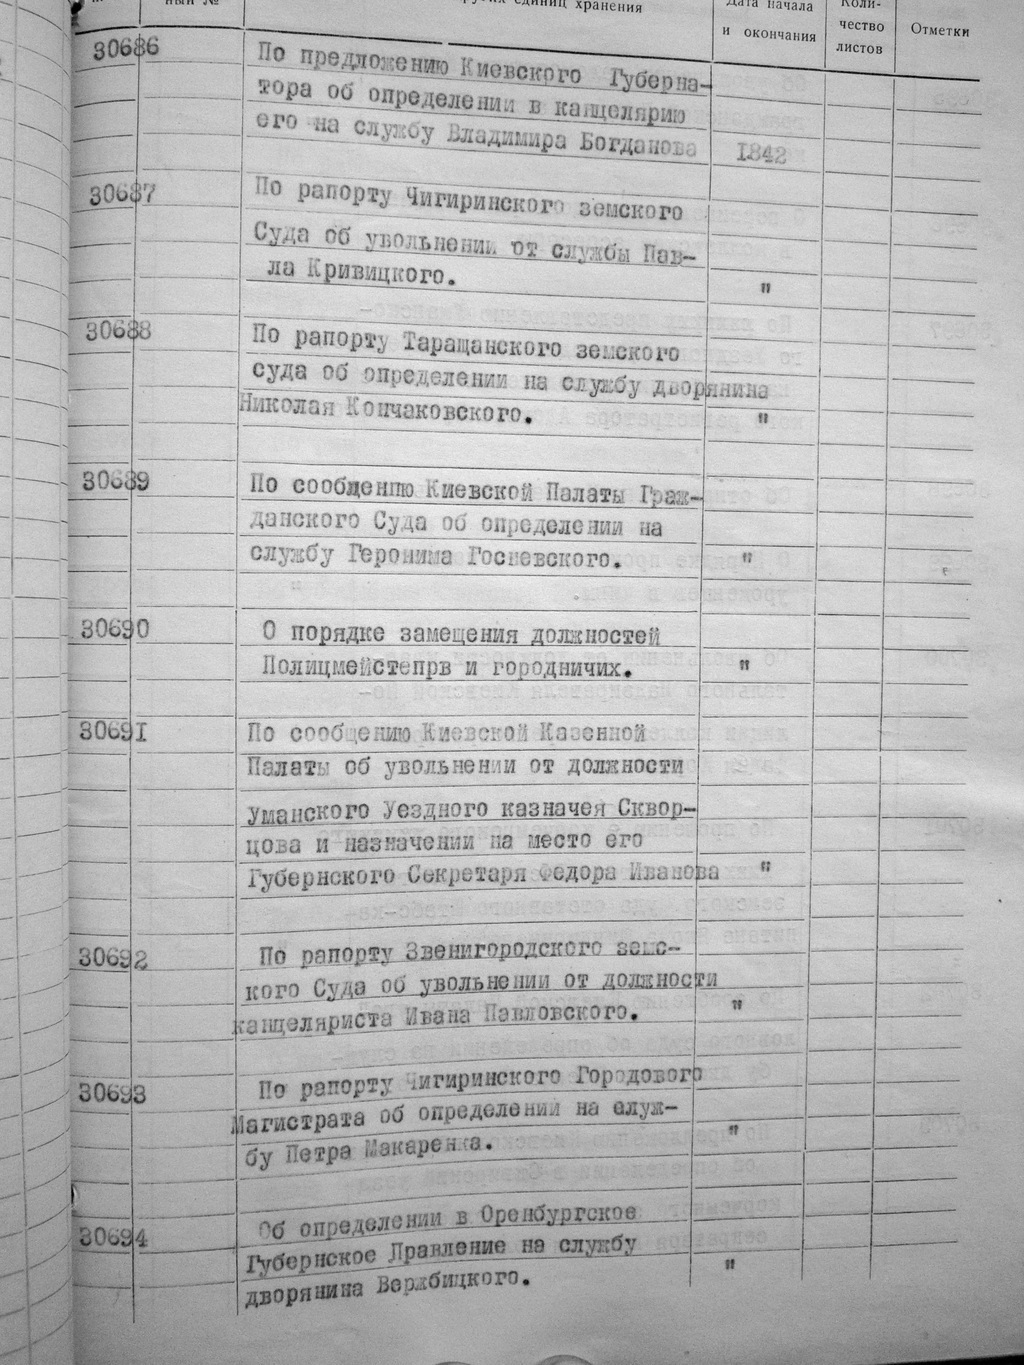 ный №
других единиц хранения
Дата начала
и окончания
Коли-
чество
листов
Отметки
30686
По предложению Киевского Губерна-
тора об определении в канцелярию
его на службу Владимира Богданова 1842
30687
По рапорту Чигиринского земского
Суда об увольнении от службы Пав-
ла Кривицкого. "
30688
По рапорту Таращанского земского
суда об определении на службу дворянина
Николая Кончаковского. "
30689
По сообщению Киевской Палаты Граж-
данского Суда об определении на
службу Геронима Госневского. "
30690
О порядке замещения должностей
Полицмейстепрв и городничих. "
30691
По сообщению Киевской Казенной
Палаты об увольнении от должности
Уманского Уездного казначея Сквор-
цова и назначении на место его
Губернского Секретаря Федора Иванова "
30692
По рапорту Звенигородского земс-
кого Суда об увольнении от должности
канцеляриста Ивана Павловского. "
30693
По рапорту Чигиринского Городового
Магистрата об определении на служ-
бу Петра Макаренка. "
30694
Об определении в Оренбургское
Губернское Правление на службу
дворянина Вержбицкого. "